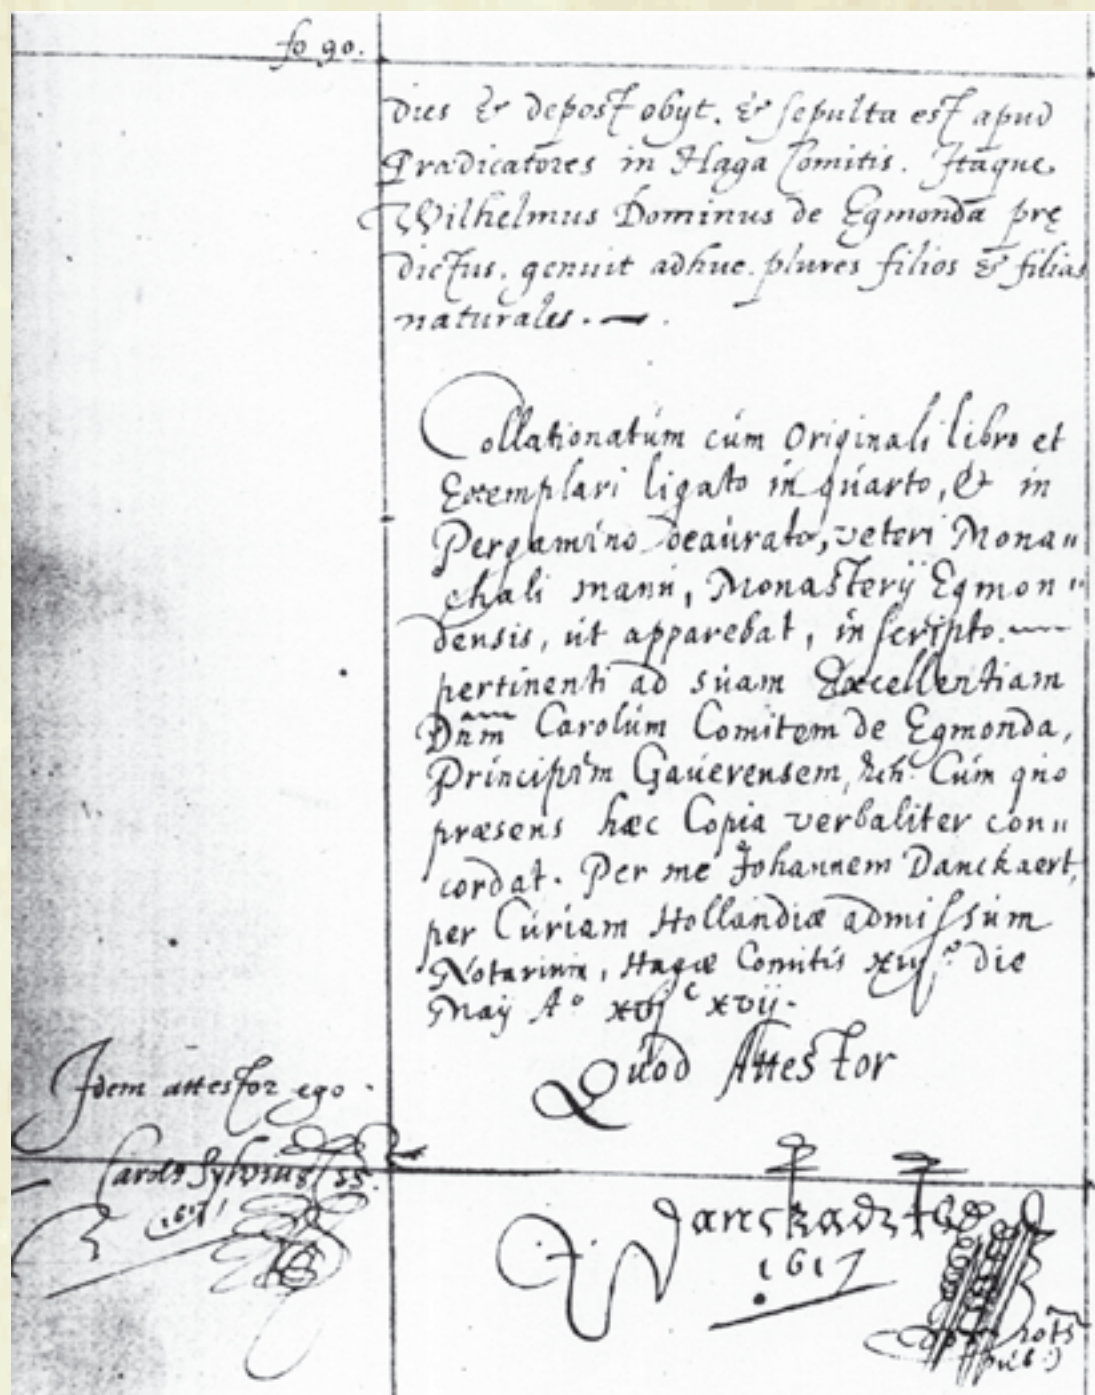 fo 90.
dies & depost obyt. & sepulta est apud
Prædicatores in Haga Comitis. Itaque
Wilhelmus Dominus de Egmonda prę
dictus. genuit adhuc. plures filios & filias
naturales. — .
Collationatúm cúm Originali libro et
Exemplari ligato in qúarto, & in
Pergamino deaúrato, veteri Mona〃
chali manú, Monasterÿ Egmon〃
densis, út apparebat, inscripto. —
pertinenti ad súam Excellentiam
Dnm Carolúm Comitem de Egmonda,
Principem Gaúerensem, &ch. Cúm qúo
præsens hæc Copia verbaliter con〃
cordat. Per me Johannem Danckaert,
per Cúriam Hollandiæ admissúm
Notariúm, Hagæ Comitis die
Maÿ Aº xvjᶜ xvij.
Qúod Attestor
Idem attestor ego.
1617
Danckaert
1617
Notũs
púb:)